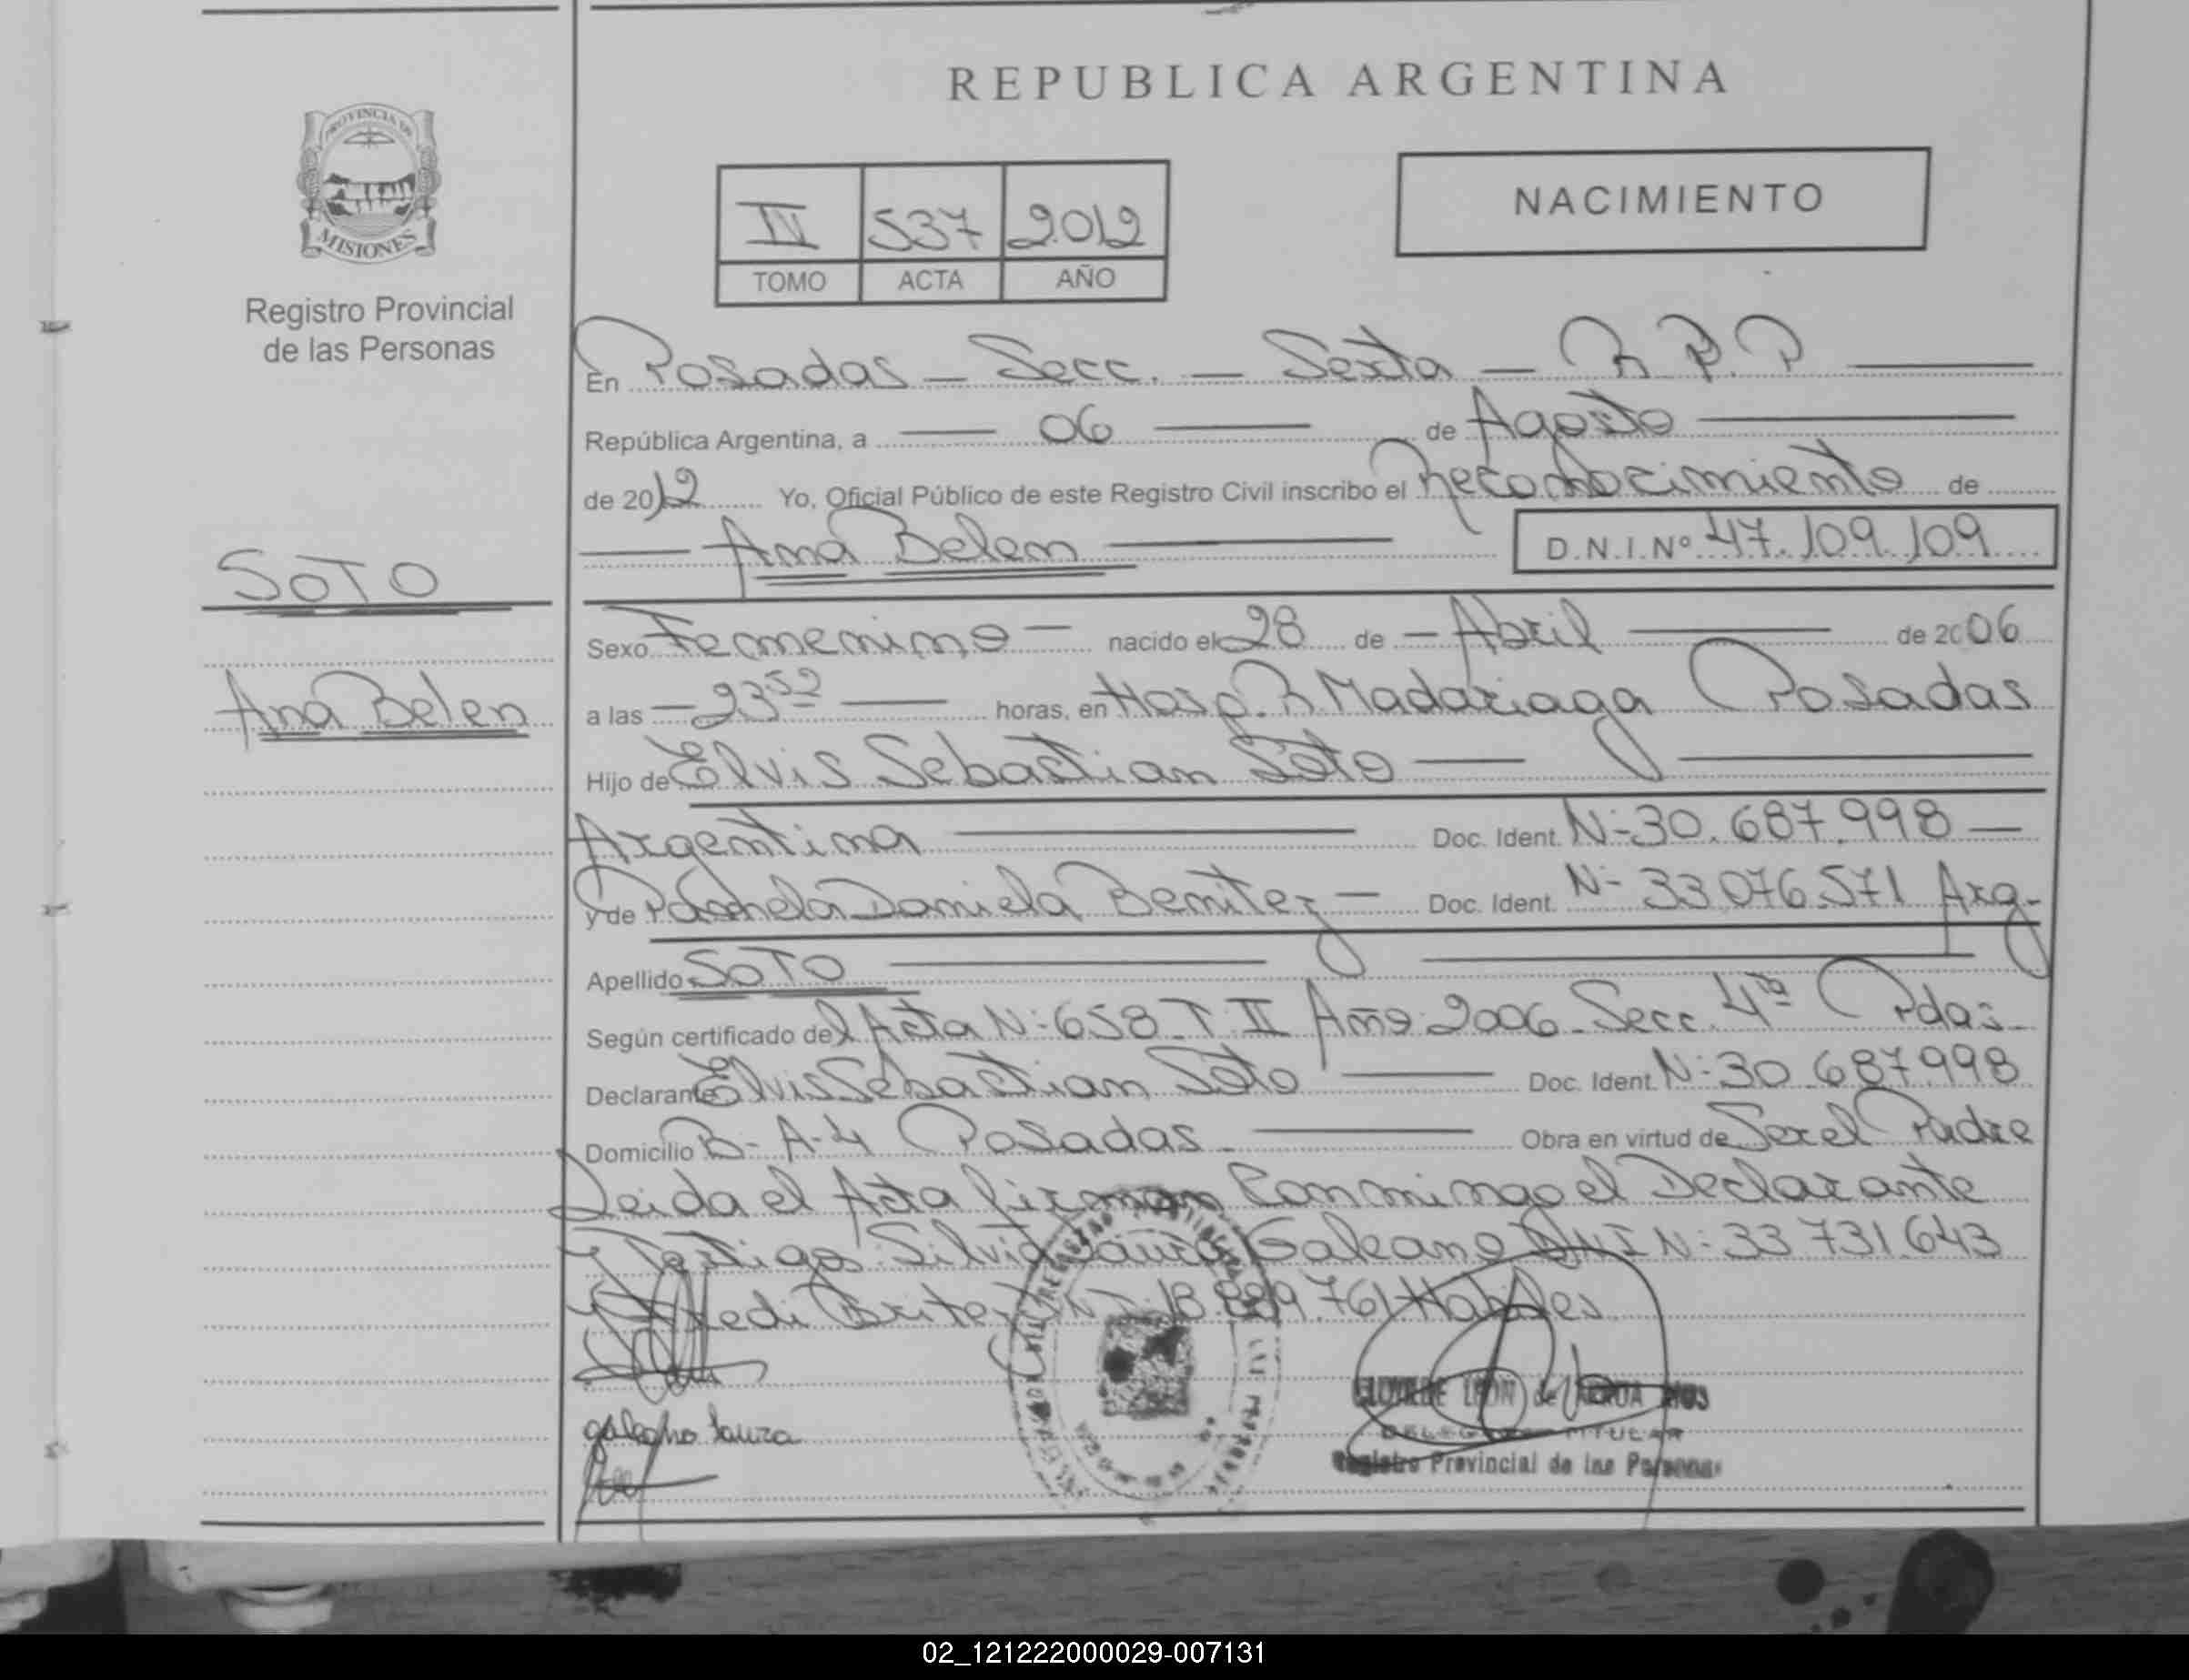 REPUBLICA ARGENTINA
PROVINCIA DE
MISIONES
Registro Provincial
de las Personas
NACIMIENTO
IV 537 2012
TOMO ACTA AÑO
En Posadas - Secc. - Sexta - R.P.P
República Argentina, a 06 de Agosto
de 2012 Yo, Oficial Público de este Registro Civil inscribo el Reconocimiento de
Ana Belen D.N.I.Nº 47.109.109
SOTO
Ana Belen
Sexo Femenino - nacido el 28 de - Abril de 2006
a las - 23:52 horas, en Hosp. R Madariaga Posadas
Hijo de Elvis Sebastian Soto
Argentina Doc. Ident. N- 30.687.998
y de Pamela Daniela Benitez - Doc. Ident. N- 33.076.571 Arg-
Apellido SOTO
Según certificado del Acta N: 658 T II Año 2006 Secc. 4ta Pdas-
Declarante Elvis Sebastian Soto Doc. Ident. N: 30.687.998
Domicilio B- A-4 Posadas - Obra en virtud de Ser el Padre
Leida el Acta firman Conmimgo el Declarante
y Testigos: Silvia Laura Galeano DNI N: 33 731 643
y Fredi Brites DNI: 18.889.761 Habiles
galeano laura
DELEGADA TITULAR
Registro Provincial de las Personas
02_121222000029-007131